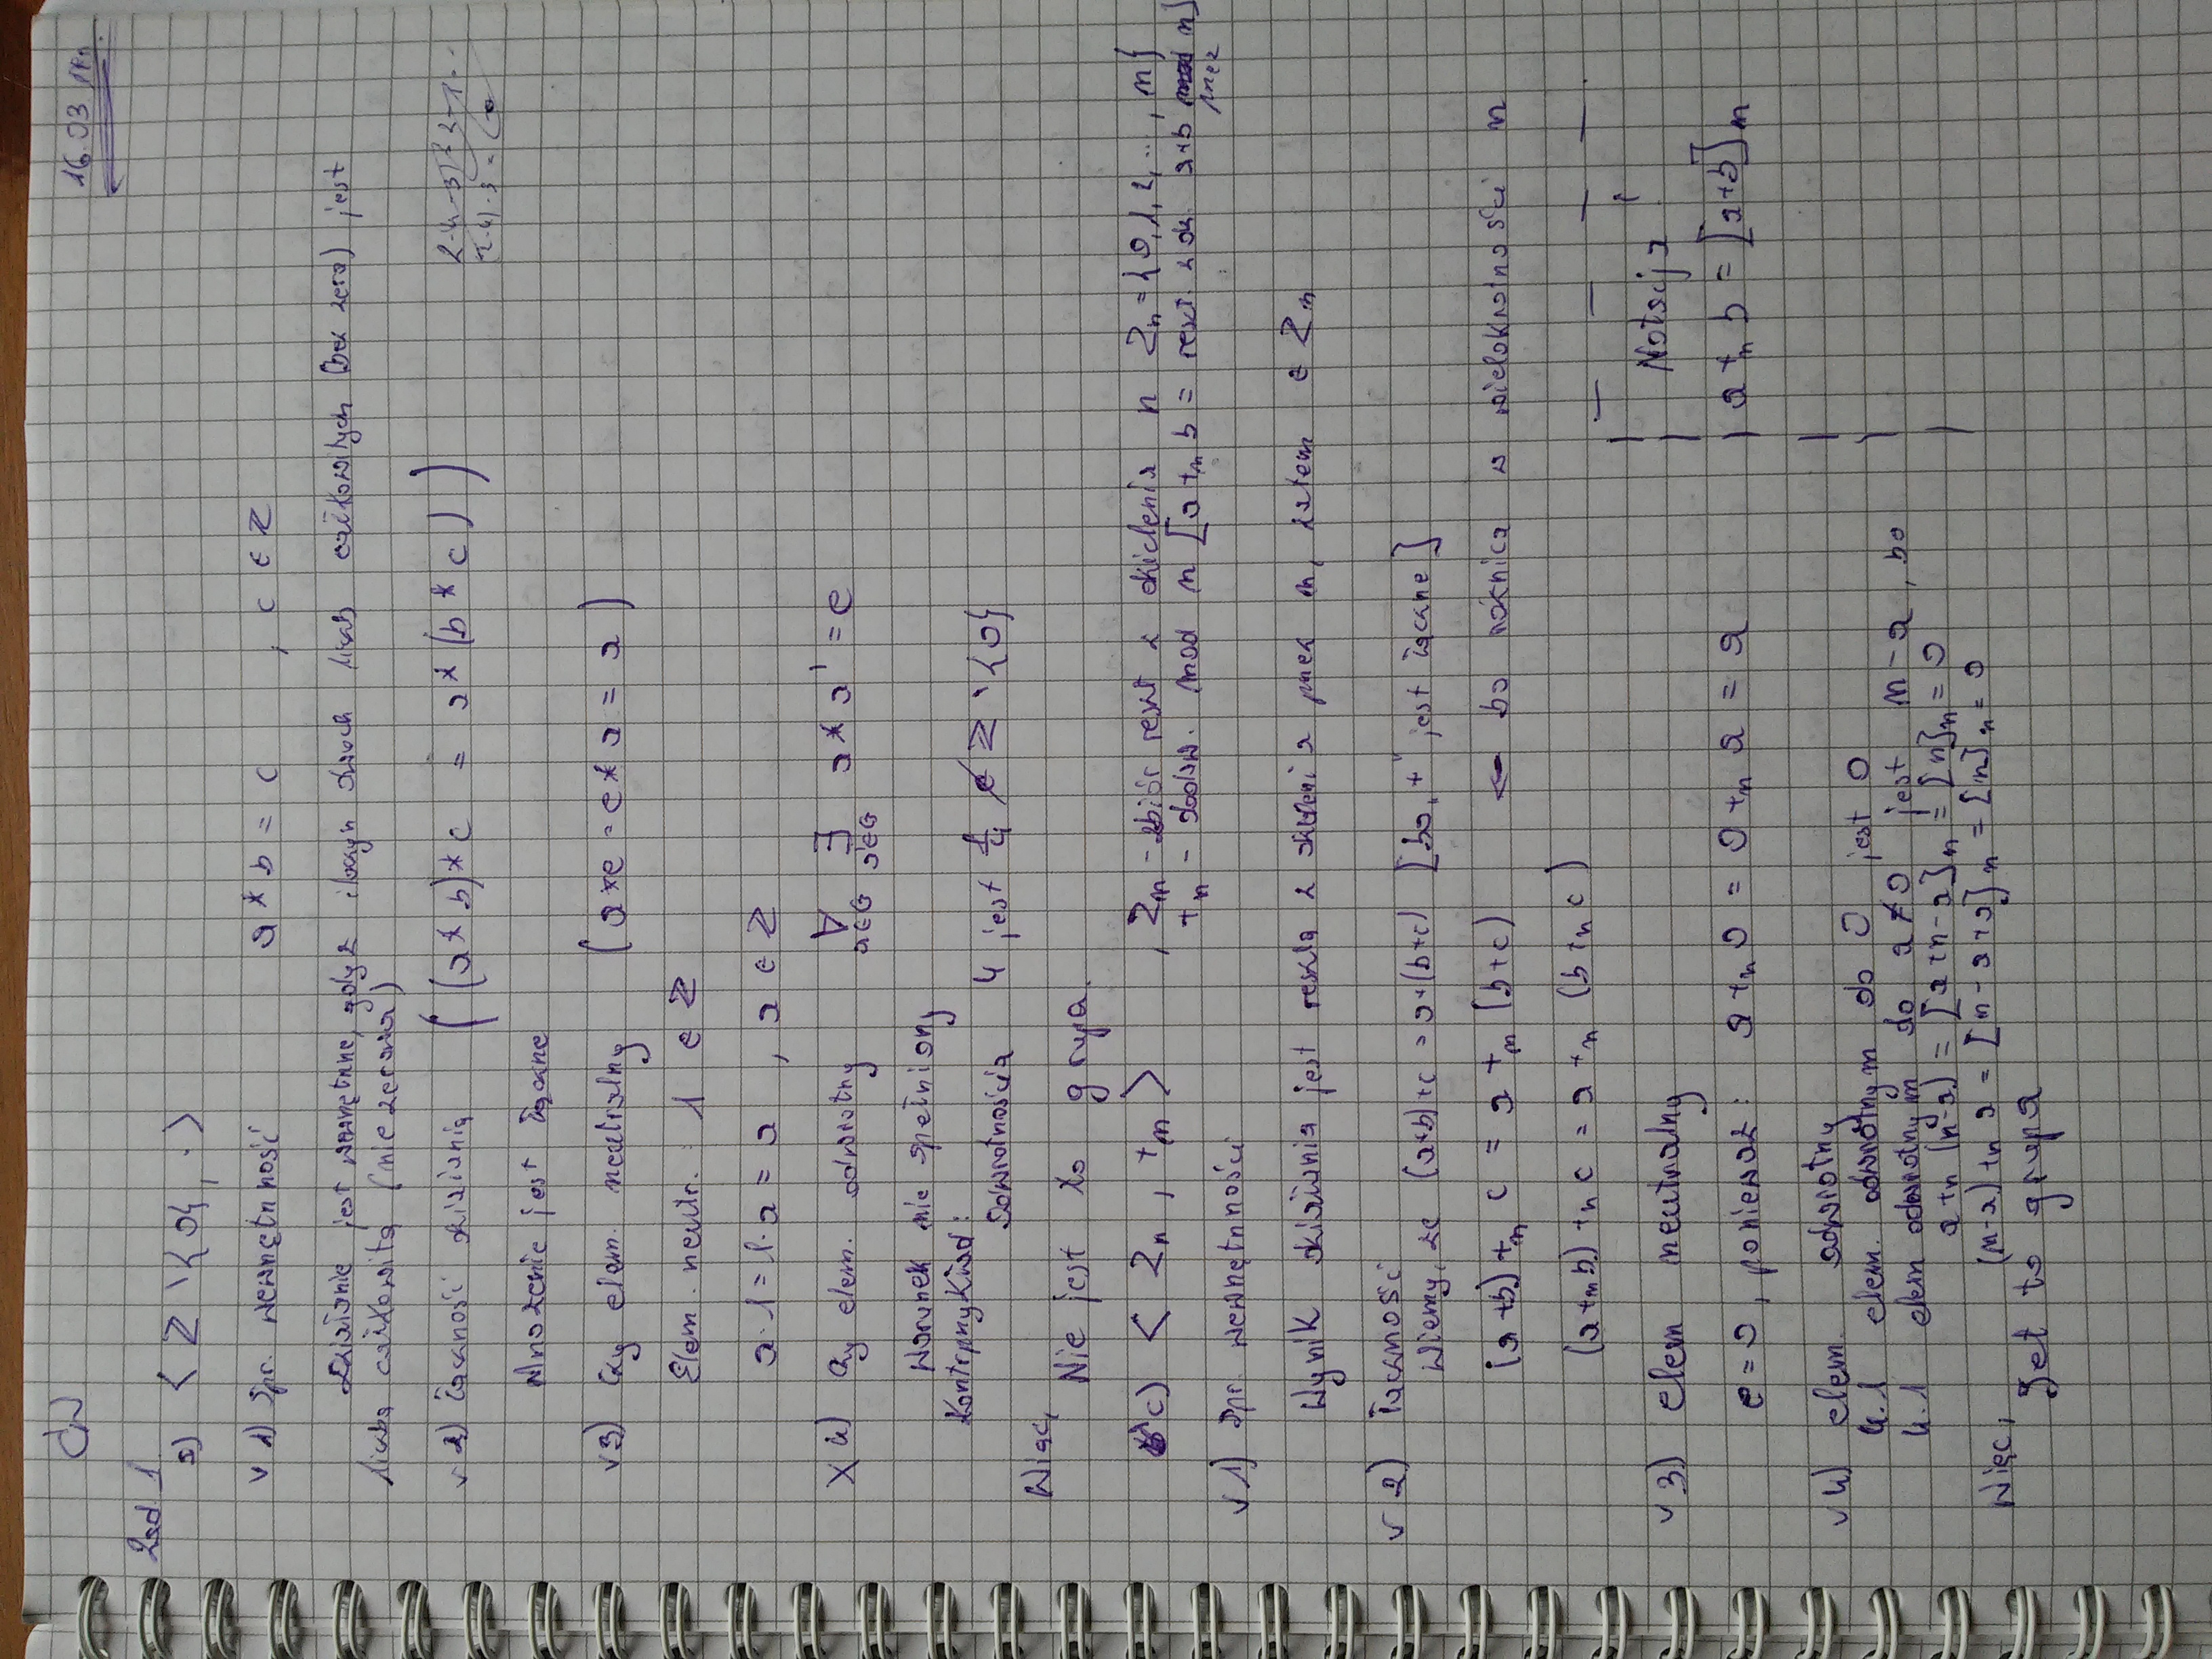 Ćw
16.03
Zad. 1
a) < Z \ {0}, · >
v 1) Spr. wewnętrzność a * b = c , c ∈ Z
Działanie jest wewnętrzne, gdyż iloczyn dwóch liczb całkowitych (bez zera) jest
liczbą całkowitą (niezerowa)
v 2) łączność działania ( (a * b) * c = a * (b * c) )
Mnożenie jest łączne
v 3) Czy elem. neutralny (a * e = e * a = a)
Elem. neutr. : 1 ∈ Z
a · 1 = 1 · a = a , a ∈ Z
X 4) Czy elem. odwrotny ∀ a∈G ∃ a'∈G a * a' = e
Warunek nie spełniony
Kontrprzykład:
Odwrotnością 4 jest 1/4 ∉ Z \ {0}
Więc,
Nie jest to grupa.
c) < Zn , +n > , Zn - zbiór reszt z dzielenia n Zn = {0, 1, 2, ..., n}
+n - dodaw. mod n [a +n b = reszt. z dz. a+b przez n]
v 1) Spr. wewnętrzności
Wynik działania jest resztą z dzielenia przez n, zatem ∈ Zn
v 2) łączność
Wiemy, że (a+b)+c = a+(b+c) [bo „+" jest łączne]
(a+b) +n c = a +n (b+c) ← bo różnica o wielokrotności n
(a +n b) +n c = a +n (b +n c)
v 3) elem neutralny
e = 0, ponieważ: a +n 0 = 0 +n a = a
Notacja
a +n b = [a+b]n
v 4) elem. odwrotny
4.1 elem. odwrotnym do 0 jest 0
4.1 elem odwrotnym do a ≠ 0 jest n-a, bo
a +n (n-a) = [a+n-a]n = [n]n = 0
(n-a) +n a = [n-a+a]n = [n]n = 0
Więc,
Jet to grupa